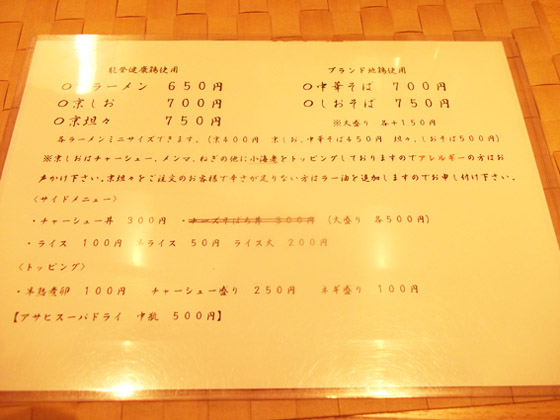 能登健康鶏使用　ブランド地鶏使用
〇 ラーメン　６５０円　〇中華そば　７００円
〇京しお　７００円　〇しおそば　７５０円
〇京坦々　７５０円　※大盛り　各＋１５０円
各ラーメンミニサイズできます。(京４００円　京しお、中華そば４５０円　坦々、しおそば５００円)
※京しおはチャーシュー、メンマ、ねぎの他に小海老をトッピングしておりますのでアレルギーの方はお
声かけ下さい。京坦々をご注文のお客様で辛さが足りない方はラー油を追加しますのでお申し付け下さい。
〈サイドメニュー〉
・チャーシュー丼　３００円　・チーズそぼろ丼　３００円　(大盛り　各５００円)
・ライス　１００円　半ライス　５０円　ライス大　２００円
〈トッピング〉
・半熟煮卵　１００円　チャーシュー盛り　２５０円　ネギ盛り　１００円
【アサヒスーパドライ　中瓶　５００円】